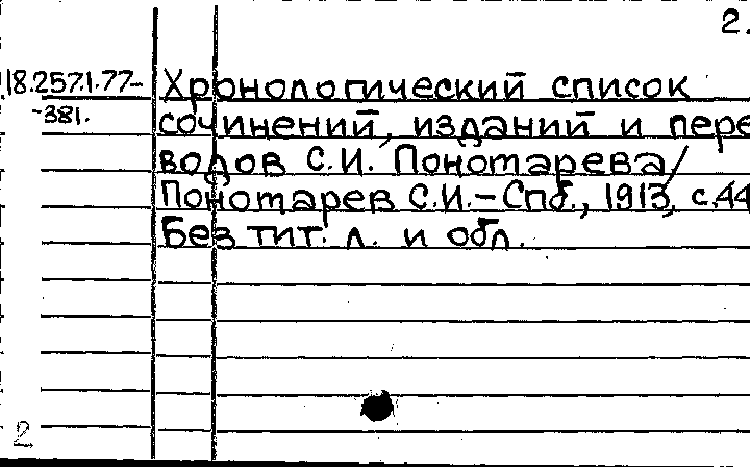 2.
18.257.1.77-
-381.
Хронологический список
сочинений, изданий и пере
водов С.И. Пономарева/
Пономарев С.И.-Спб., 1913, с.44
Без тит. л. и обл.
2